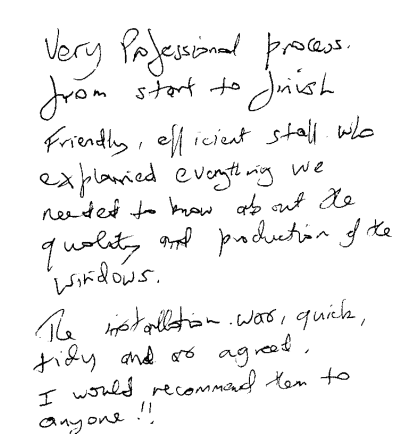 Very Professional process.
from start to finish
Friendly, efficient staff who
explained everything we
needed to know about the
quality and production of the
windows.
The installation was, quick,
tidy and as agreed.
I would recommend them to
anyone!!